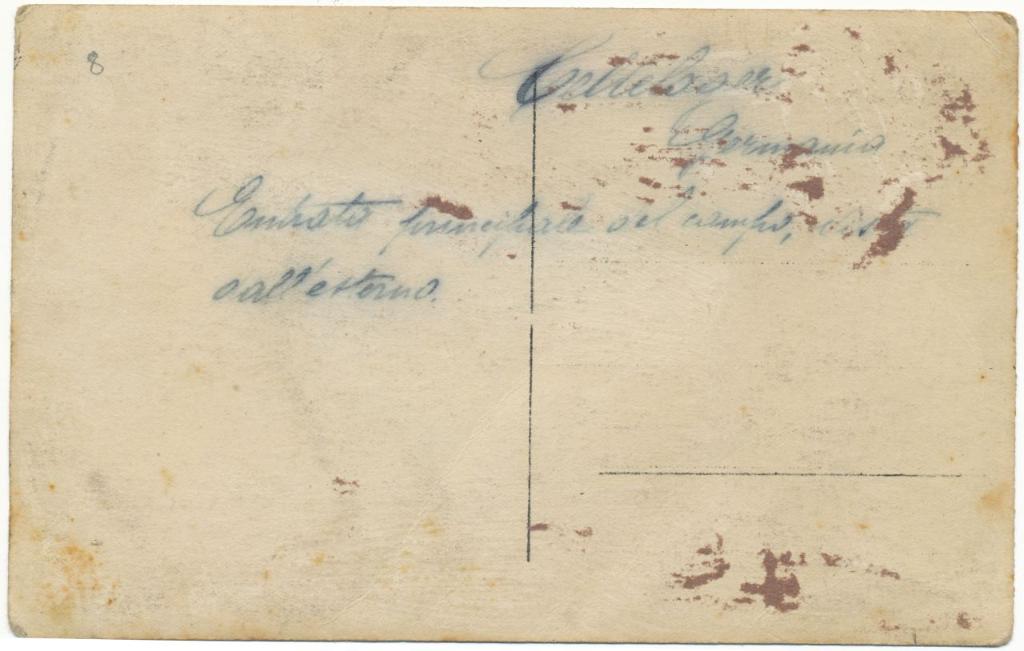 8
Cellelager
Germania
Entrata principale del campo, vista
dall'esterno.